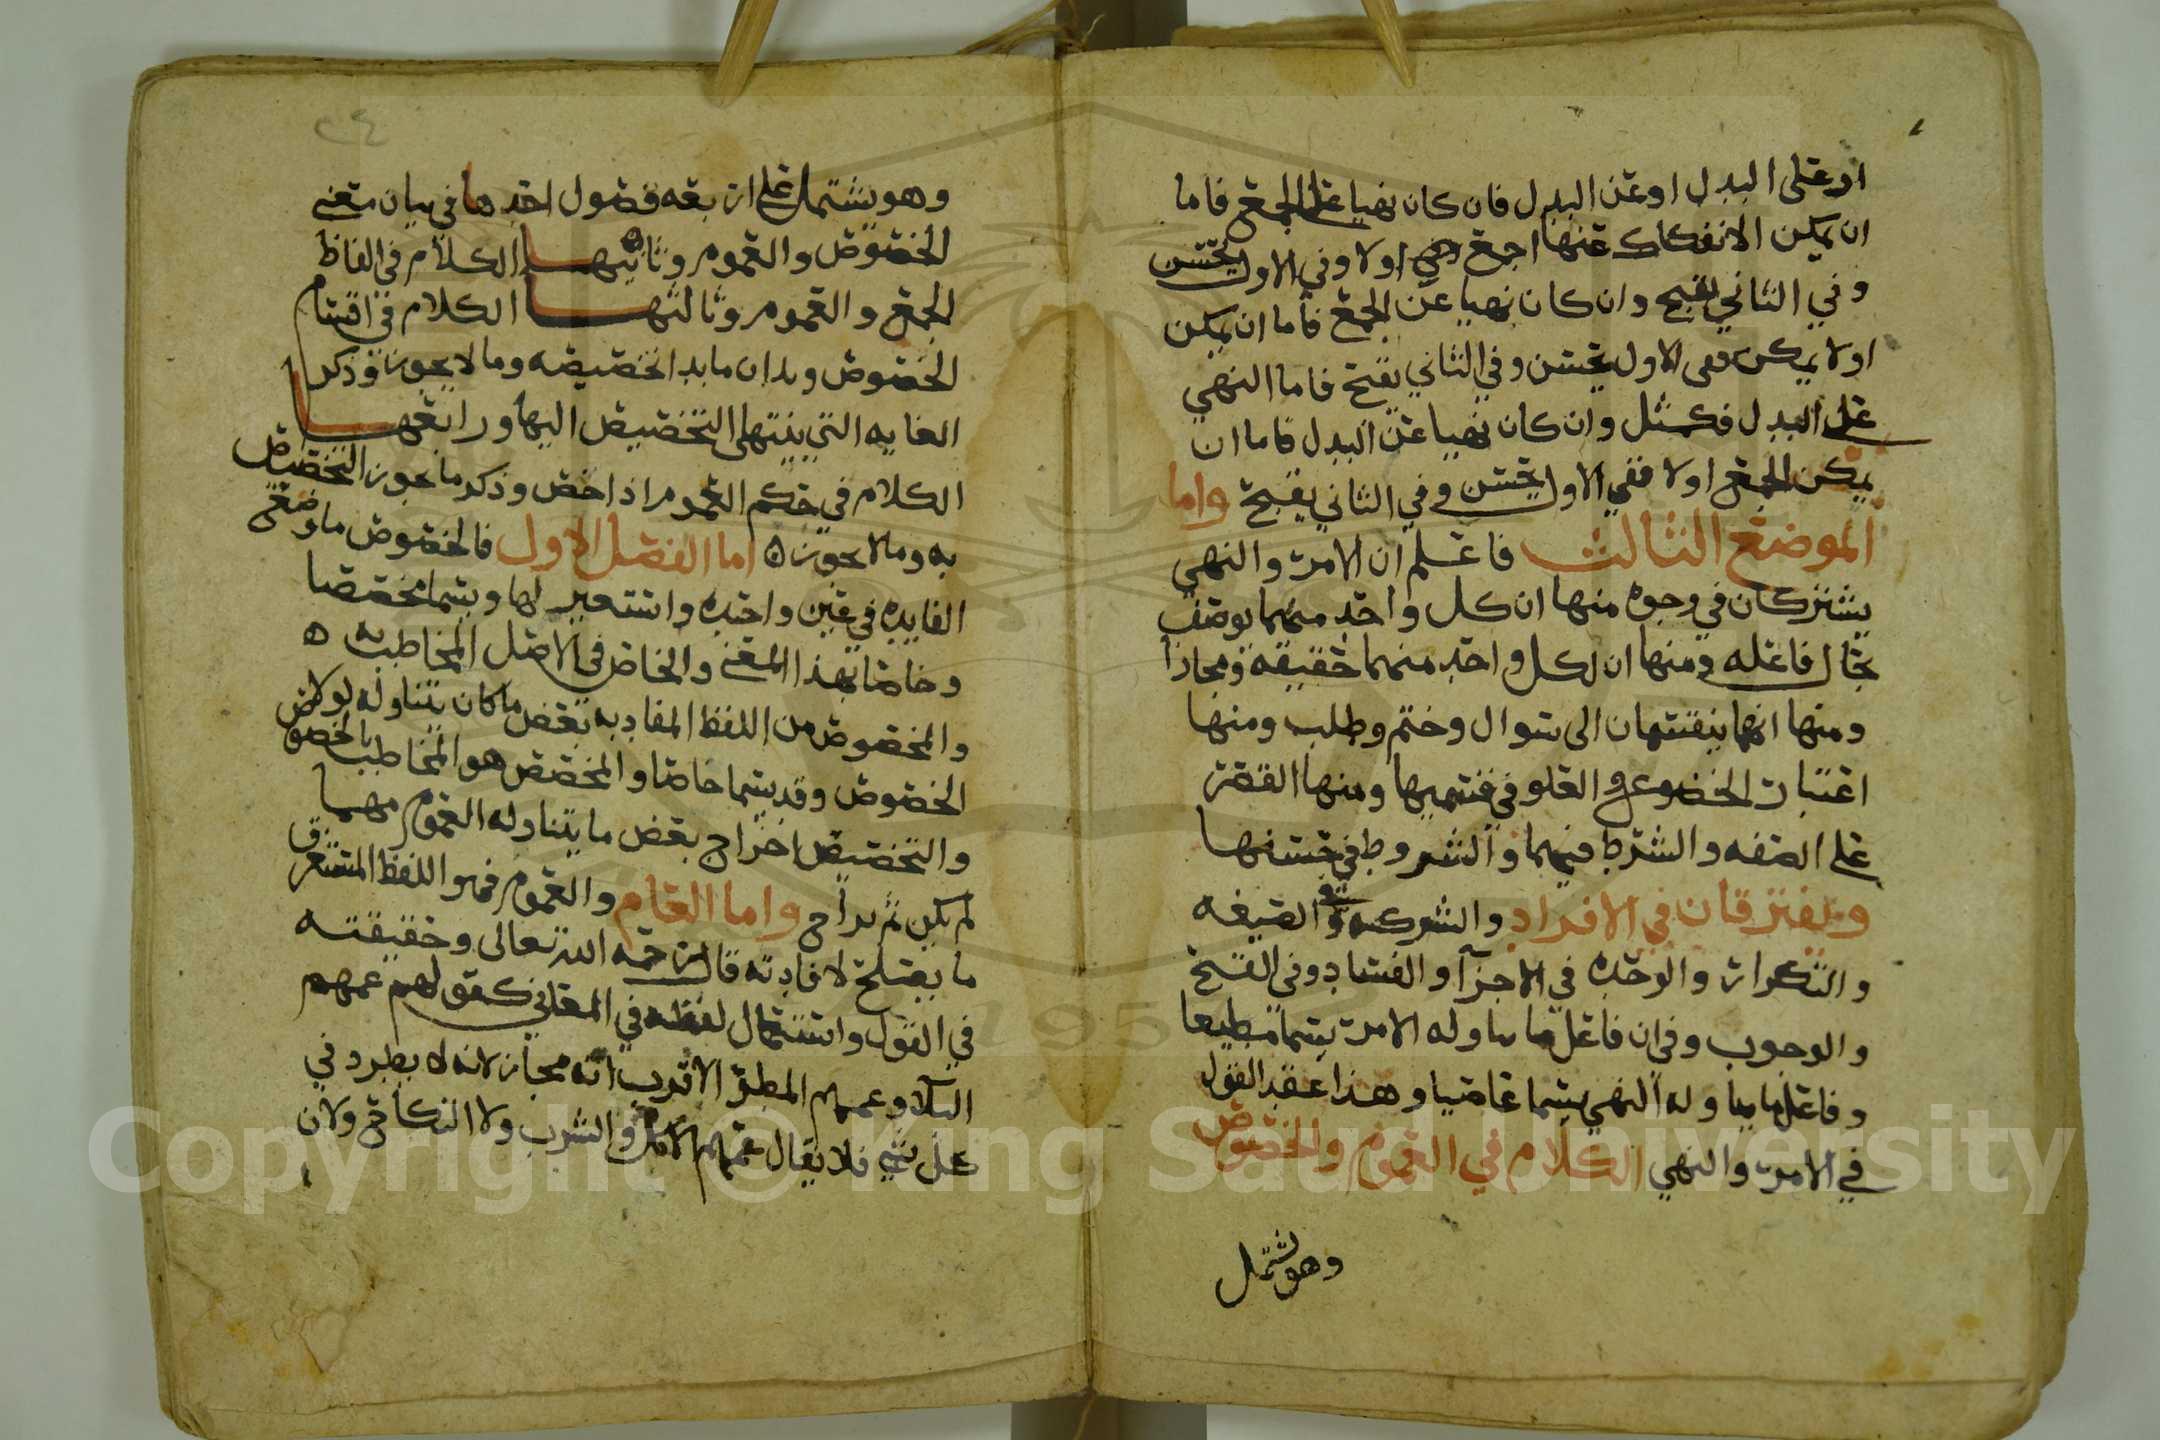 او على البدل او عن البدل فان كان نهيا على الجمع فاما
ان يمكن الانفكاك عنها اجمع اولا وفي الاول يحسن
وفي الثاني يقبح وان كان نهيا عن الجمع فاما ان يمكن
او لا يمكن ففى الاول يحسن وفي الثاني يقبح فاما النهي
على البدل فكمثل وان كان نهيا عن البدل فاما ان
يمكن الجمع اولا ففي الاول يحسن وفي الثاني يقبح واما
الموضع الثالث فاعلم ان الامر والنهي
يشتركان في وجوه منها ان كل واحد منهما يوصف
بحال فاعله ومنها ان لكل واحد منهما حقيقه ومجازا
ومنها انهما ينقسمان الى سوال وحتم وطلب ومنها
اعتبار الخضوع والعلو في قسميها ومنها القصر
على الصفه والشرط فيهما والشروط في حسنها
ويفترقان في الافراد والشركه وفي الصيغه
والتكرار والوحده في الاجزآ والفساد وفي القبح
والوجوب وفي ان فاعل ما تناوله الامر يسما مطيعا
وفاعل ما تناوله النهي يسما عاصيا وهذا عقد القول
في الامر والنهي الكلام في العموم والخصوص
وهو يشتمل
٢٤
وهو يشتمل على اربعه فصول احدها في بيان معنى
الخصوص والعموم وثانيها الكلام في الفاظ
الجمع والعموم وثالثها الكلام في اقسام
الخصوص وبدان ما بدا تخصيصه وما لا يجوز وذكر
الغايه التي ينتهى التخصيص اليها ورابعها
الكلام في حكم العموم اذا خص وذكر ما يجوز التخصيص
به وما لا يجوز ه اما الفصل الاول فالخصوص ما وضع
الفايده في عين واحده واستعير لها ويسما مخصصا
وخاصا بهذا المعنى والخاص في الاصل المخاطب به ه
والمخصوص من اللفظ المفاد به بعض ما كان يتناوله لولا
الخصوص وقد يسما خاصا والمخصص هو المخاطب بالخصوص
والتخصيص اخراج بعض ما يتناوله العموم مهما
لم يكن ثم براح واما العام والعموم فهو اللفظ المستغرق
ما يصلح لافادته قال رحمه الله تعالى وحقيقته
في القول واستعمال لفظه في المعاني كقولهم عمهم
البلا وعمهم المطر الاقرب انه مجاز لانه لا يطرد في
كل شي فلا يقال عمهم الاكل والشرب ولا النكاح ولان